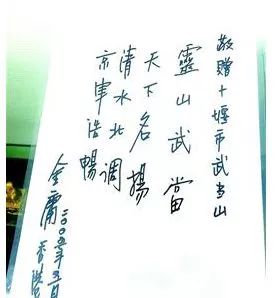 敬赠十堰市武当山
靈山武當
天下名揚
清水北調
京 浩暢
金庸 香港
二〇〇五年五